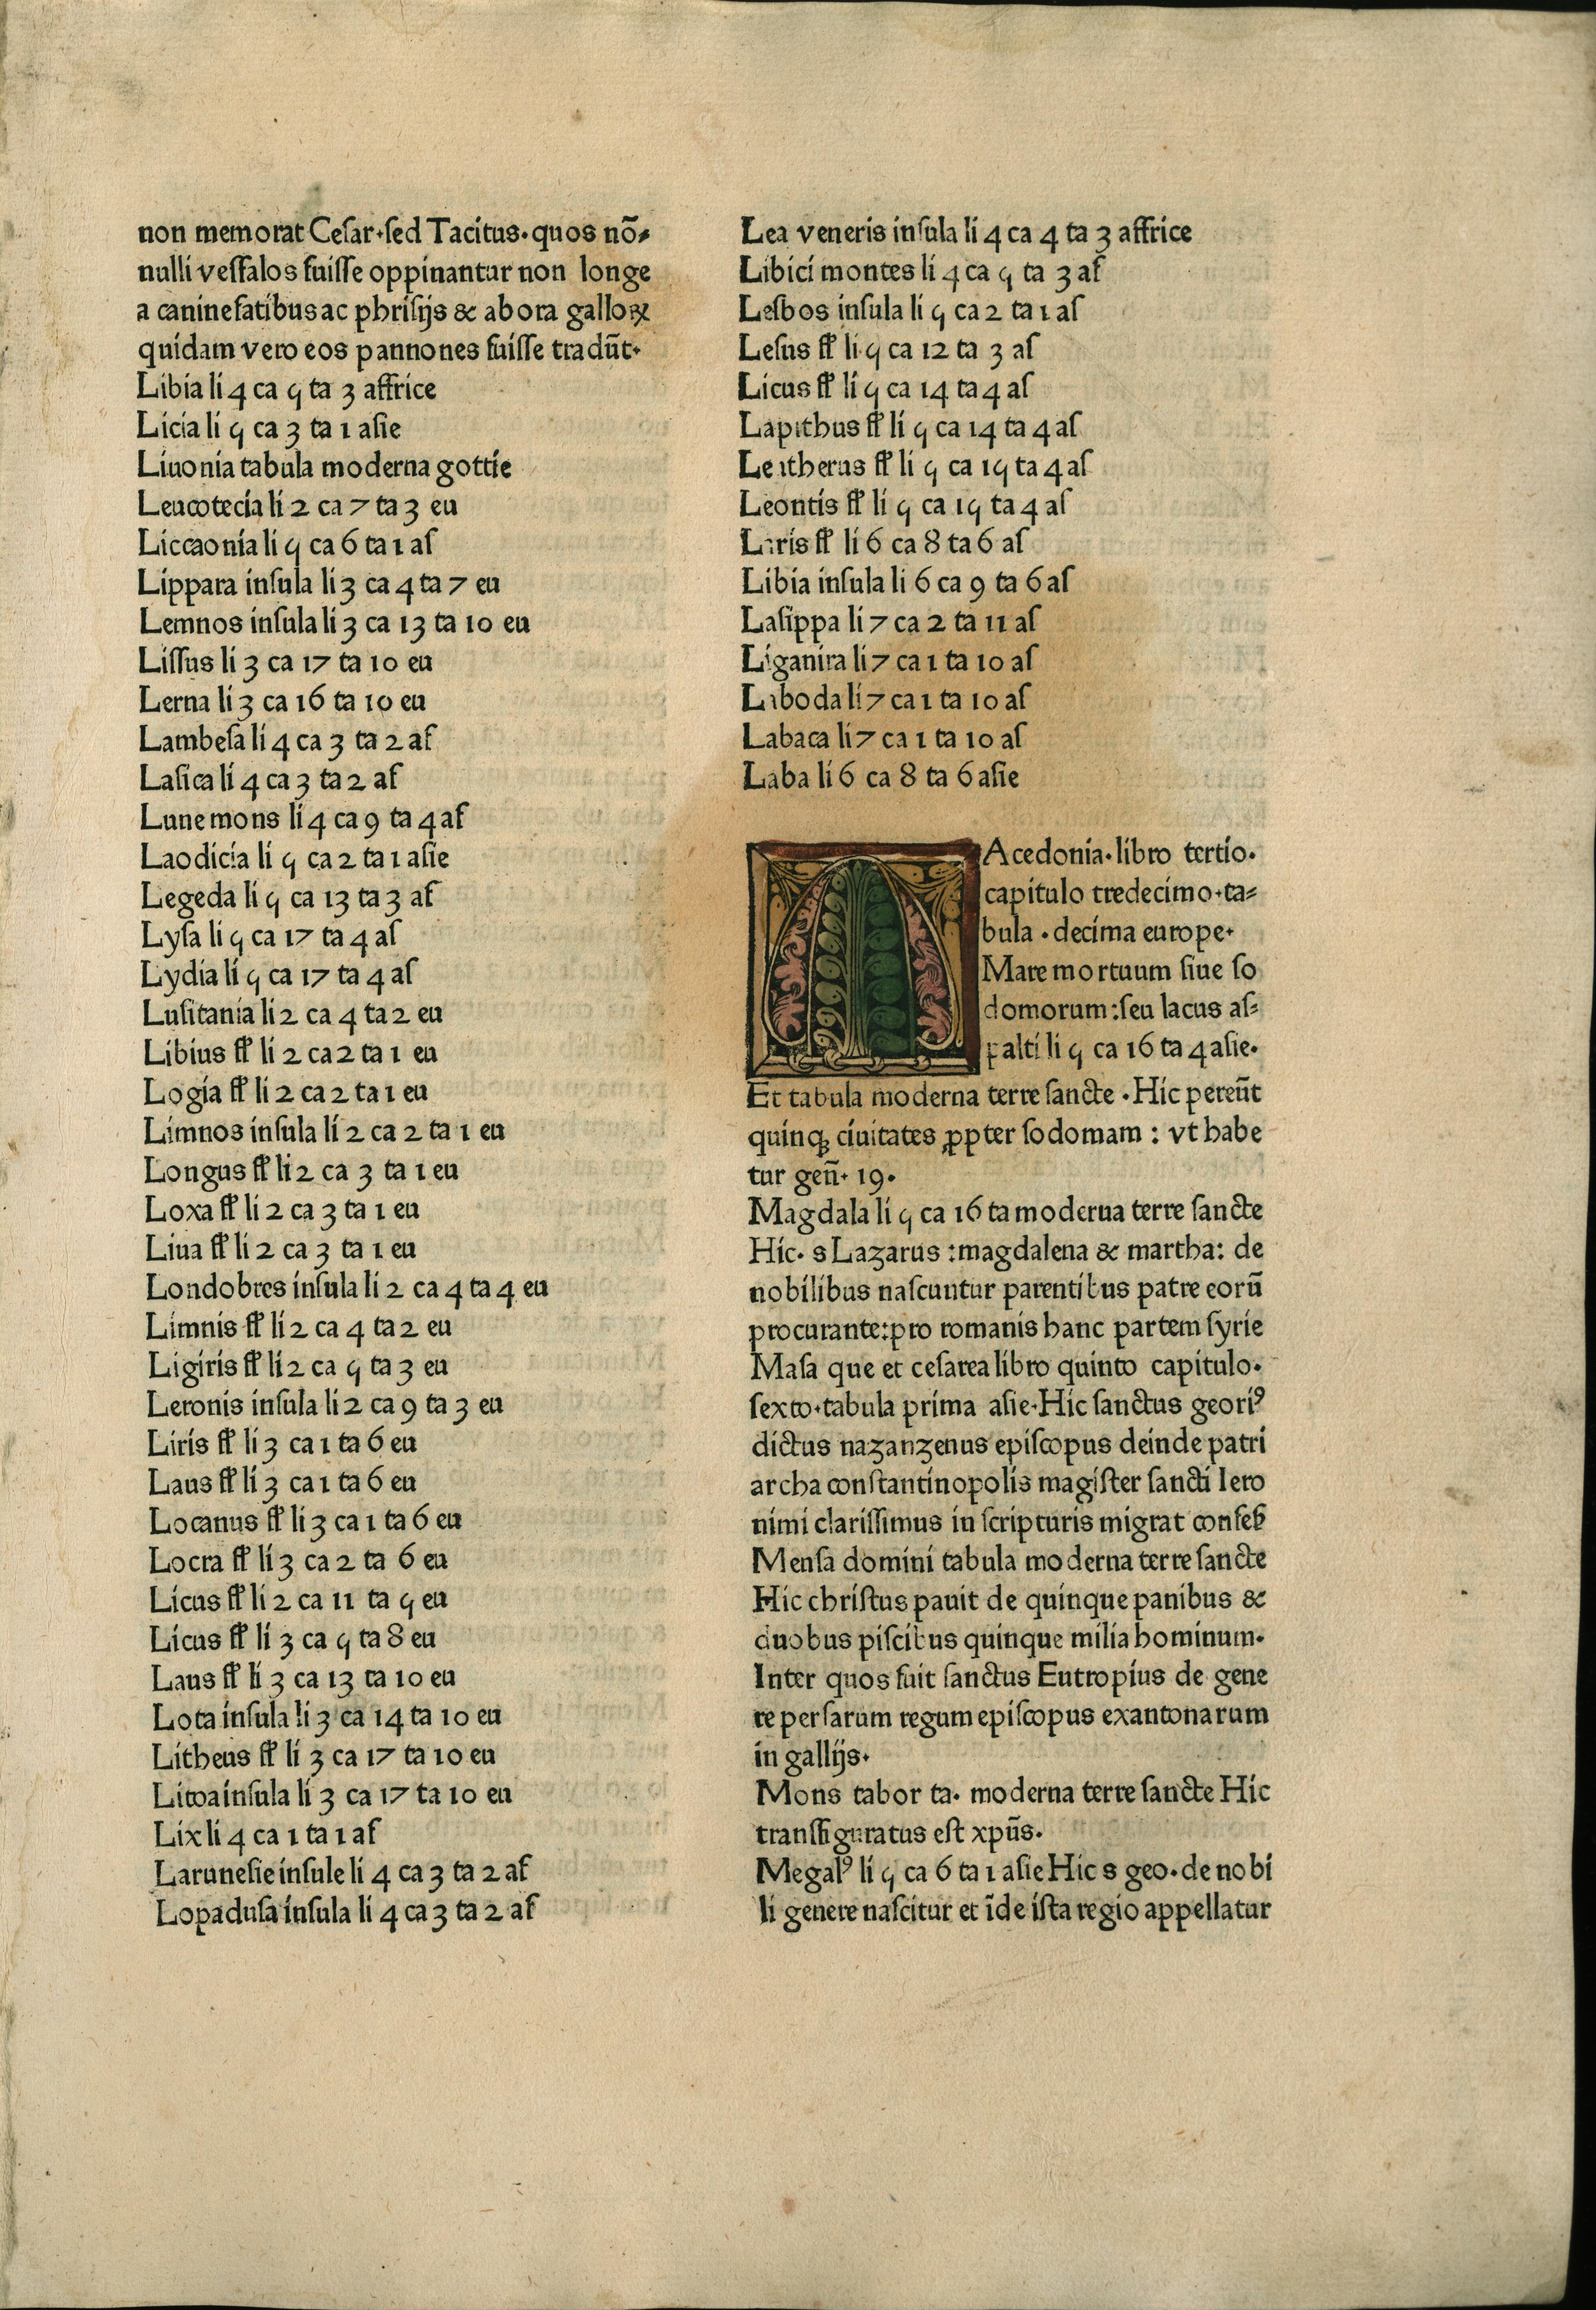 non memorat Ceſar·ſed Tacitus·quos nō⸗
nulli veſſalos fuiſſe oppinantur non longe
a caninefatibus ac phriſijs & abora galloꝝ
quidam vero eos pannones fuiſſe tradūt·
Libia li 4 ca 5 ta 3 affrice
Licia li 5 ca 3 ta 1 aſie
Liuonia tabula moderna gottie
Leucotecia li 2 ca 7 ta 3 eu
Liccaonia li 5 ca 6 ta 1 aſ
Lippara inſula li 3 ca 4 ta 7 eu
Lemnos inſula li 3 ca 13 ta 10 eu
Liſſus li 3 ca 17 ta 10 eu
Lerna li 3 ca 16 ta 10 eu
Lambeſa li 4 ca 3 ta 2 af
Laſica li 4 ca 3 ta 2 af
Lune mons li 4 ca 9 ta 4 af
Laodicia li 5 ca 2 ta 1 aſie
Legeda li 5 ca 13 ta 3 af
Lyſa li 5 ca 17 ta 4 aſ
Lydia li 5 ca 17 ta 4 aſ
Luſitania li 2 ca 4 ta 2 eu
Libius fl' li 2 ca 2 ta 1 eu
Logia fl' li 2 ca 2 ta 1 eu
Limnos inſula li 2 ca 2 ta 1 eu
Longus fl' li 2 ca 3 ta 1 eu
Loxa fl' li 2 ca 3 ta 1 eu
Liua fl' li 2 ca 3 ta 1 eu
Londobres inſula li 2 ca 4 ta 4 eu
Limnis fl' li 2 ca 4 ta 2 eu
Ligiris fl' li 2 ca 5 ta 3 eu
Leronis inſula li 2 ca 9 ta 3 eu
Liris fl' li 3 ca 1 ta 6 eu
Laus fl' li 3 ca 1 ta 6 eu
Locanus fl' li 3 ca 1 ta 6 eu
Locra fl' li 3 ca 2 ta 6 eu
Licus fl' li 2 ca 11 ta 5 eu
Licus fl' li 3 ca 5 ta 8 eu
Laus fl' li 3 ca 13 ta 10 eu
Lota inſula li 3 ca 14 ta 10 eu
Litheus fl' li 3 ca 17 ta 10 eu
Litoa inſula li 3 ca 17 ta 10 eu
Lix li 4 ca 1 ta 1 af
Laruneſie inſule li 4 ca 3 ta 2 af
Lopaduſa inſula li 4 ca 3 ta 2 af
Lea veneris inſula li 4 ca 4 ta 3 affrice
Libici montes li 4 ca 5 ta 3 af
Lesbos inſula li 5 ca 2 ta 1 aſ
Leſus fl' li 5 ca 12 ta 3 aſ
Licus fl' li 5 ca 14 ta 4 aſ
Lapithus fl' li 5 ca 14 ta 4 aſ
Leutherus fl' li 5 ca 15 ta 4 aſ
Leontis fl' li 5 ca 15 ta 4 aſ
Laris fl' li 6 ca 8 ta 6 aſ
Libia inſula li 6 ca 9 ta 6 aſ
Laſippa li 7 ca 2 ta 11 aſ
Liganira li 7 ca 1 ta 10 aſ
Laboda li 7 ca 1 ta 10 aſ
Labaca li 7 ca 1 ta 10 aſ
Laba li 6 ca 8 ta 6 aſie
MAcedonia·libro tertio·
capitulo tredecimo·ta⸗
bula·decima europe·
Mare mortuum ſiue ſo
domorum:ſeu lacus aſ⸗
palti li 5 ca 16 ta 4 aſie·
Et tabula moderna terre ſancte·Hic pereūt
quinqꝫ ciuitates ꝓpter ſodomam : vt habe
tur geñ· 19·
Magdala li 5 ca 16 ta moderua terre ſancte
Hic· s Lazarus :magdalena & martha: de
nobilibus naſcuntur parentibus patre eorū
procurante:pro romanis hanc partem ſyrie
Maſa que et ceſarea libro quinto capitulo·
ſexto·tabula prima aſie·Hic ſanctus georiꝰ
dictus nazanzenus epiſcopus deinde patri
archa conſtantinopolis magiſter ſancti Iero
nimi clariſſimus in ſcripturis migrat conſeſ
Menſa domini tabula moderna terre ſancte
Hic chriſtus pauit de quinque panibus &
duobus piſcibus quinque milia hominum·
Inter quos fuit ſanctus Eutropius de gene
re perſarum regum epiſcopus exantonarum
in gallijs·
Mons tabor ta· moderna terre ſancte Hic
tranſfiguratus eſt xpūs·
Megalꝰ li 5 ca 6 ta 1 aſie Hic s geo·de nobi
li genere naſcitur et īde iſta regio appellatur